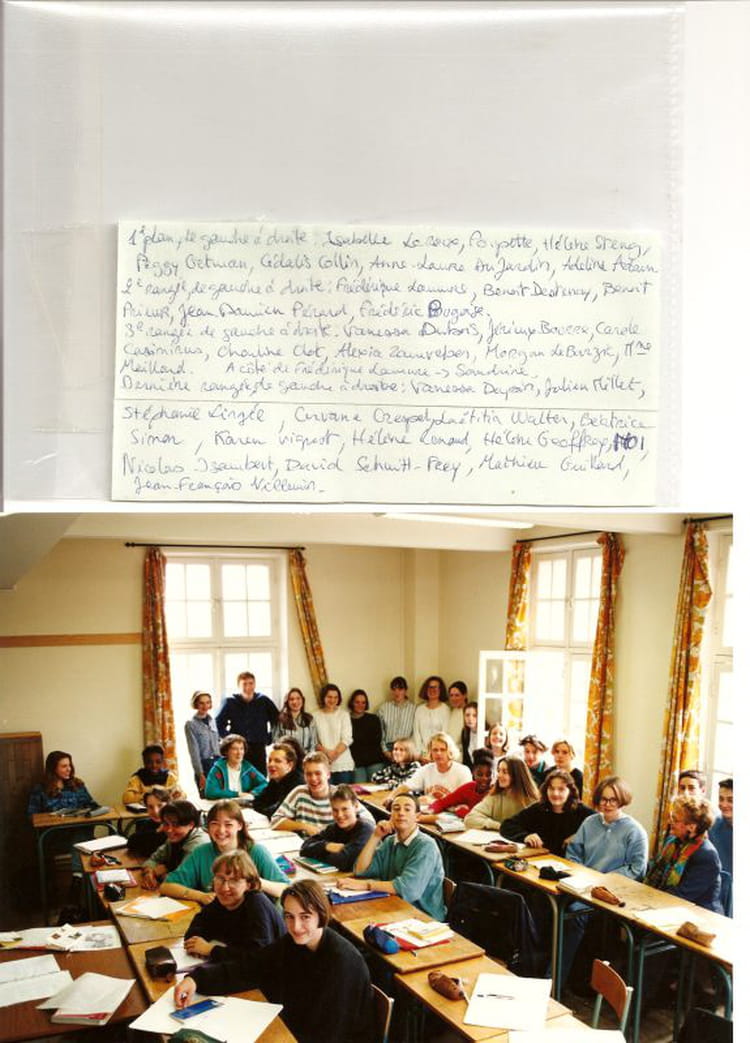 1e plan, de gauche à droite : Isabelle Leroux, Poupette, Hélène Steng,
Peggy Oetman, Collin, Anne-Laure Dujardin, Adeline Adam
2e rangée, de gauche à droite : Frédérique Lamure, Benoit , Benoit
Prieur, Jean-Damien Pérard, Frédéric
3e rangée de gauche à droite. Vanessa Dubois, Jérémy , Carole
Casimirus, Charline Clot, Alexia , Morgan le , Mme
Maillard. A côté de Frédérique Lamure -> Sandrine
Dernière rangée, de gauche à droite : Vanessa , Julien Millet,
Stéphanie , , Laëtitia Walter, Béatrice
Simon, Karen Vignot, Hélène Renaud, Hélène Geoffroy, MOI,
Nicolas Izambert, David Schmitt- , Mathieu Guillard,
Jean-François Villemin.